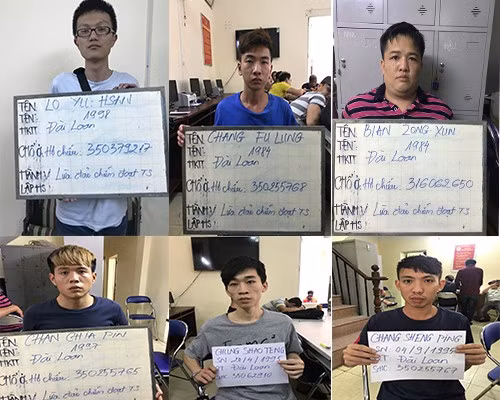 TÊN: LO YU-HSAN
TÊN: 1998
HKTT Đài Loan
CHỖ Ở: H chiếu: 350379217
HÀNH VI Lừa đảo chiếm đoạt TS
LẬP HS:
TÊN: CHANG FU LUNG
TÊN: 1984
HKTT Đài Loan
CHỖ Ở H chiếu: 350255768
HÀNH VI Lừa đảo chiếm đoạt TS
LẬP HS
TÊN: BIAN ZONG XUN
TÊN: 1984
HKTT Đài Loan
CHỖ Ở H chiếu: 316062650
HÀNH VI Lừa đảo chiếm đoạt TS
LẬP HS:
TÊN: CHAN CHIA PIN
TÊN: 1997
Đài Loan
H chiếu: 350255765
Lừa đảo chiếm đoạt TS
CHUNG SHAO TENG
1995
Đài Loan
CHANG SHENG PING
SN 04/9/1995
Đài Loan
350255767